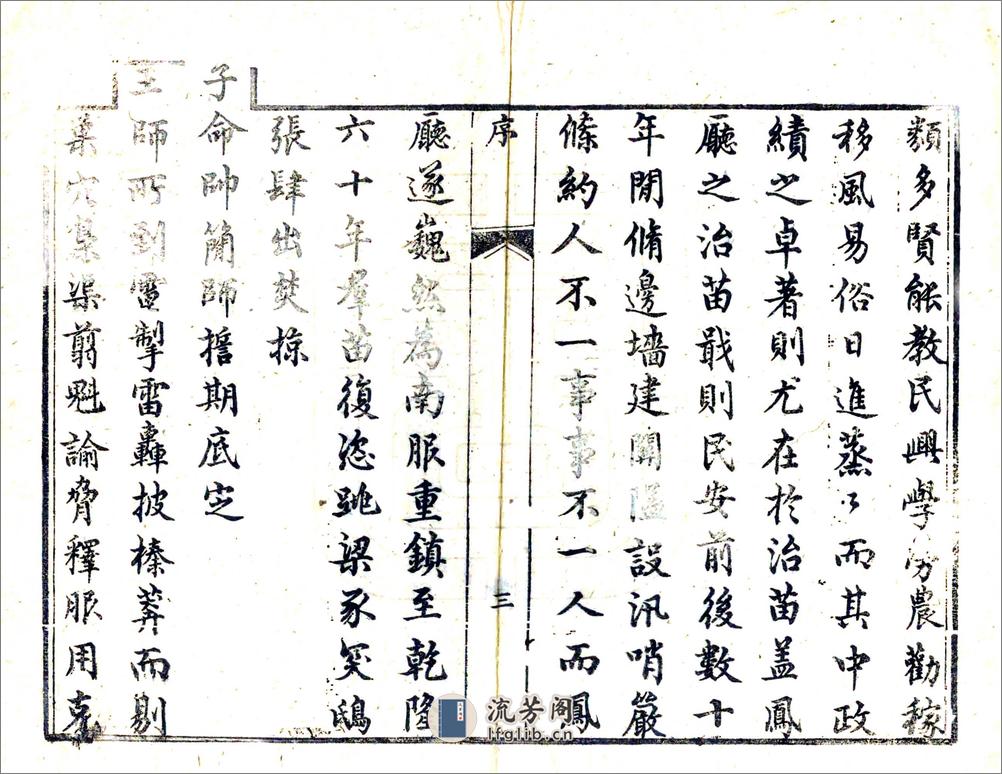 類多賢能教民興學力農勸稼
移風易俗日進蒸〻而其中政
績之卓著則尤在於治苗蓋鳳
廳之治苗戢則民安前後數十
年閒脩邊墻建關隘設汛哨嚴
條約人不一事事不一人而鳳
序
三
廳遂巍然為南服重鎮至乾隆
六十年羣苗復恣跳梁豕突鴟
張肆出焚掠
子命帥簡師搘期底定
王師所到電掣雷轟披榛莽而剔
巢穴集渠剪魁論脅釋服用克
流芳阁
lfglib.cn